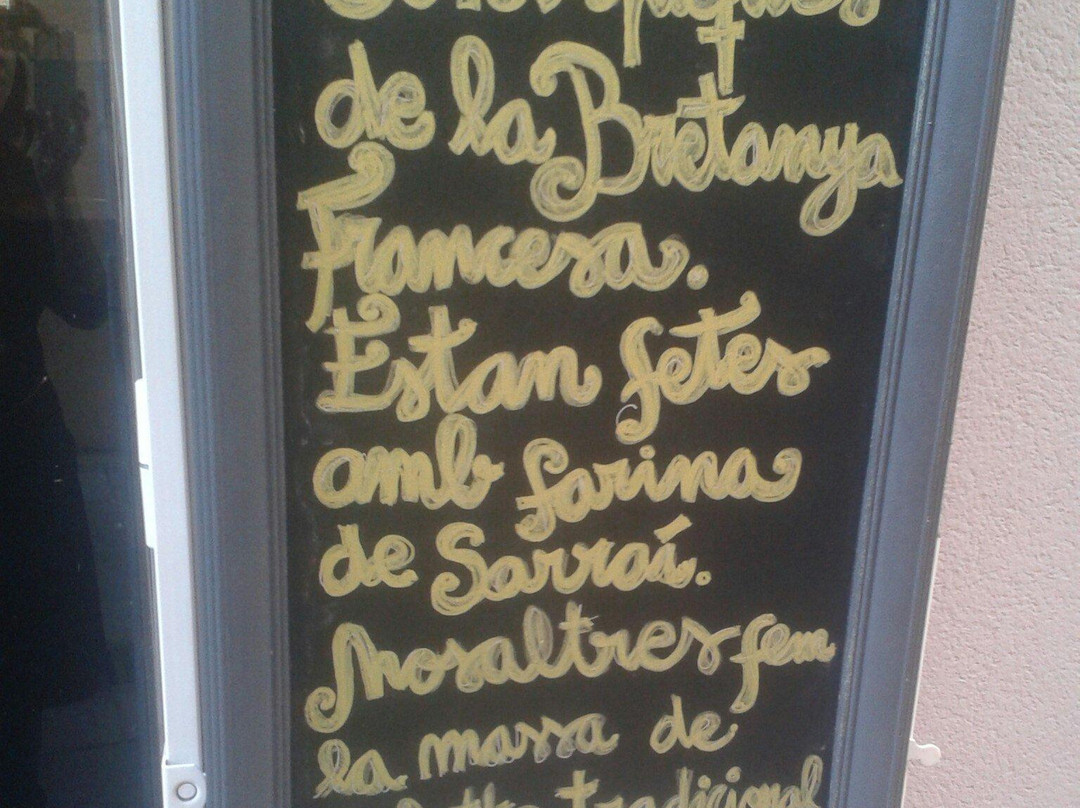 de la Bretanya
Francesa.
Estan fetes
amb farina
de Sarraí.
Nosaltres fem
la massa de
tradicional